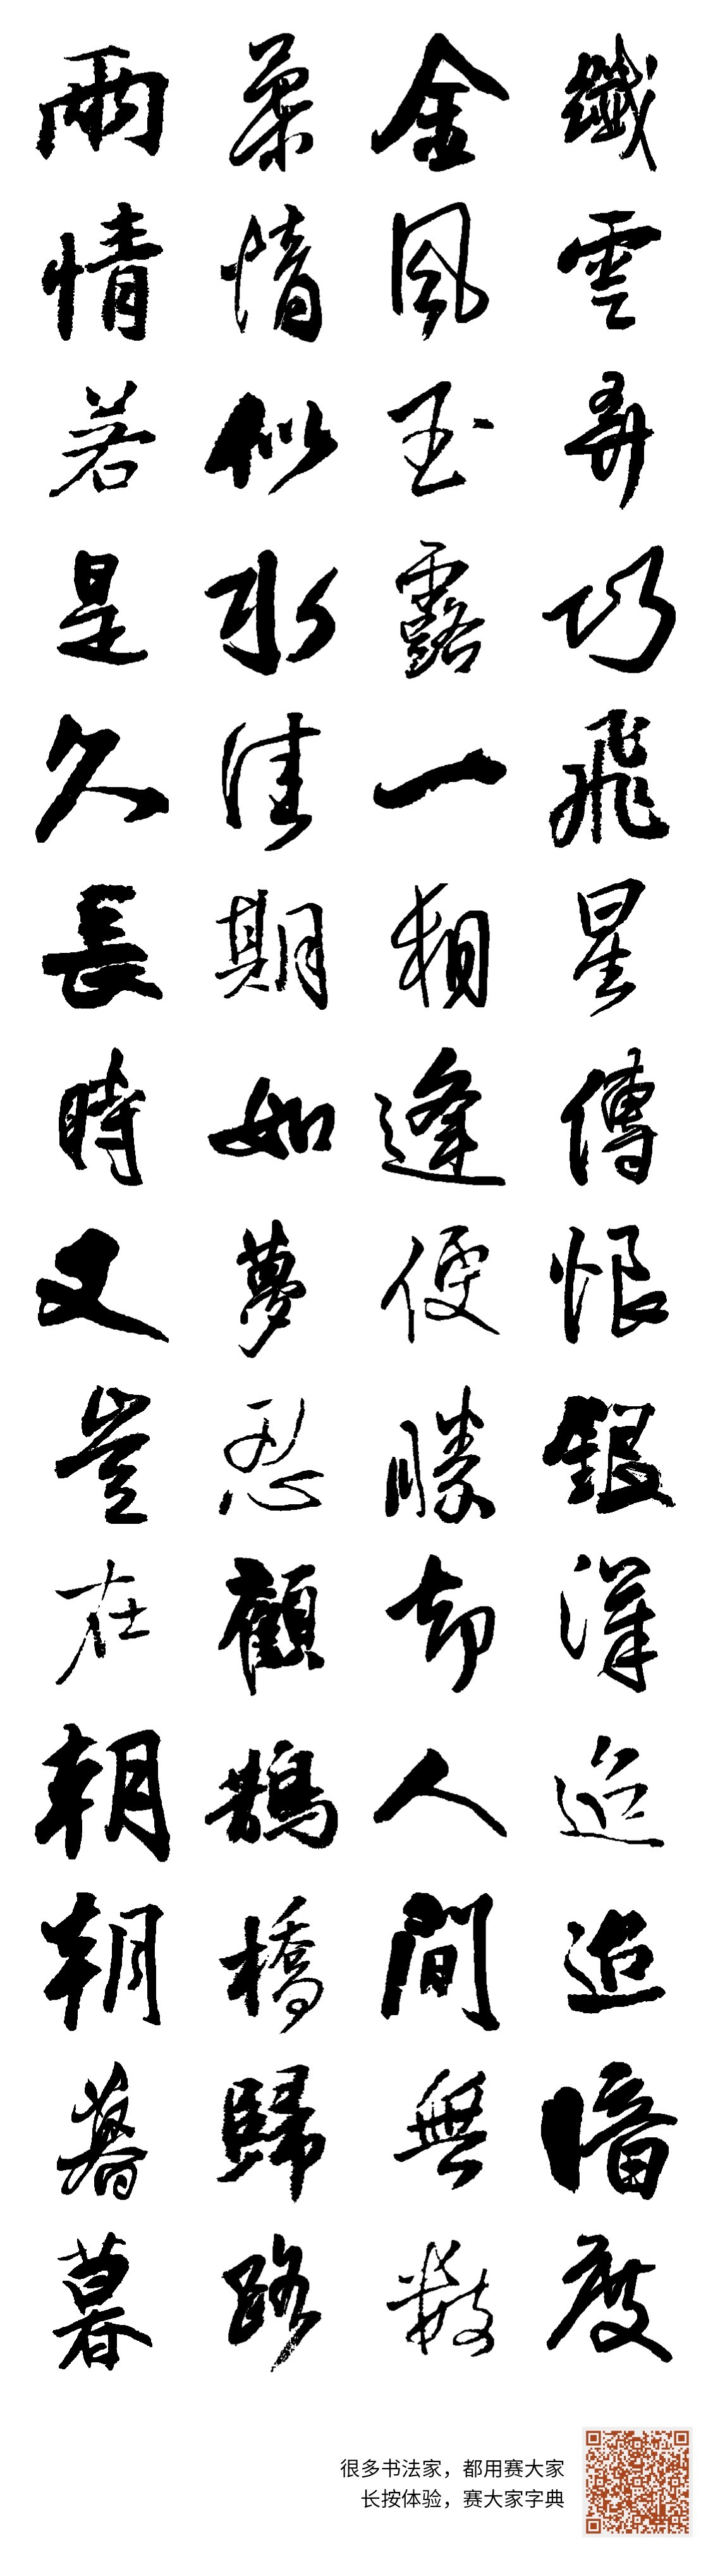 纖雲弄巧飛星傳恨銀漢迢迢暗度
金風玉露一相逢便勝却人間無数
柔情似水佳期如夢忍顧鵲橋歸路
兩情若是久長時又豈在朝朝暮暮
很多书法家，都用赛大家
长按体验，赛大家字典